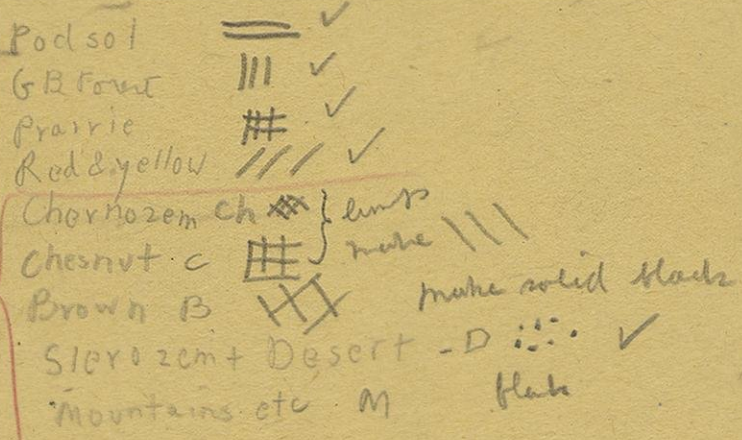 Podsol
GB Forest
Prairie
Red & yellow
Chernozem Ch
lump
Chesnut C
make
Brown B
make solid black
Sierozem + Desert - D
black
Mountains etc M